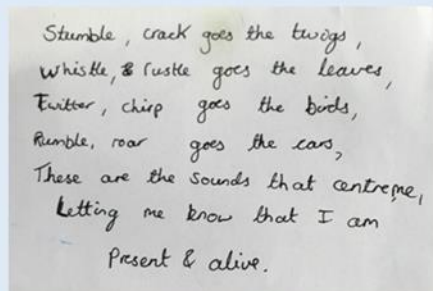 Stumble, crack goes the twigs,
Whistle, & rustle goes the leaves,
Twitter, chirp goes the birds,
Rumble, roar goes the cars,
These are the sounds that centre me,
Letting me know that I am
Present & alive.